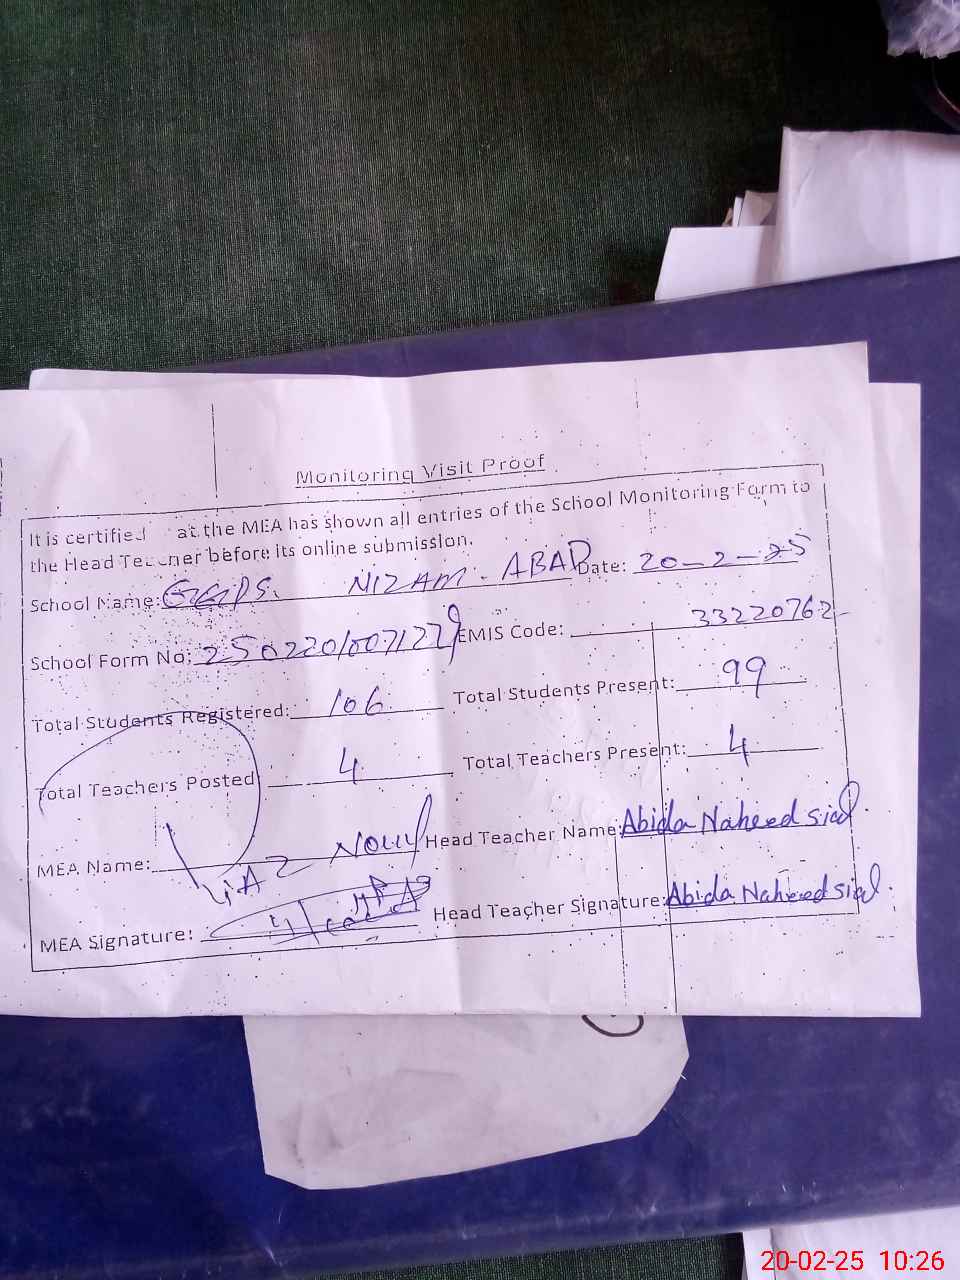 Monitoring Visit Proof
It is certified at the MEA has shown all entries of the School Monitoring Form to
the Head Teacher before its online submission.
School Name: GGPS. NIZAM. ABAD Date: 20-2-25
School Form No: EMIS Code: 33220762
Total Students Registered: 106 Total Students Present: 99
Total Teachers Posted 4 Total Teachers Present: 4
MEA Name: Head Teacher Name: Abida Naheed Sial
MEA Signature: Head Teacher Signature: Abida Naheed Sial
20-02-25 10:26